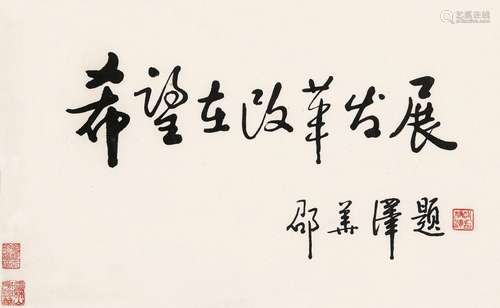 希望在改革发展
邵华泽题